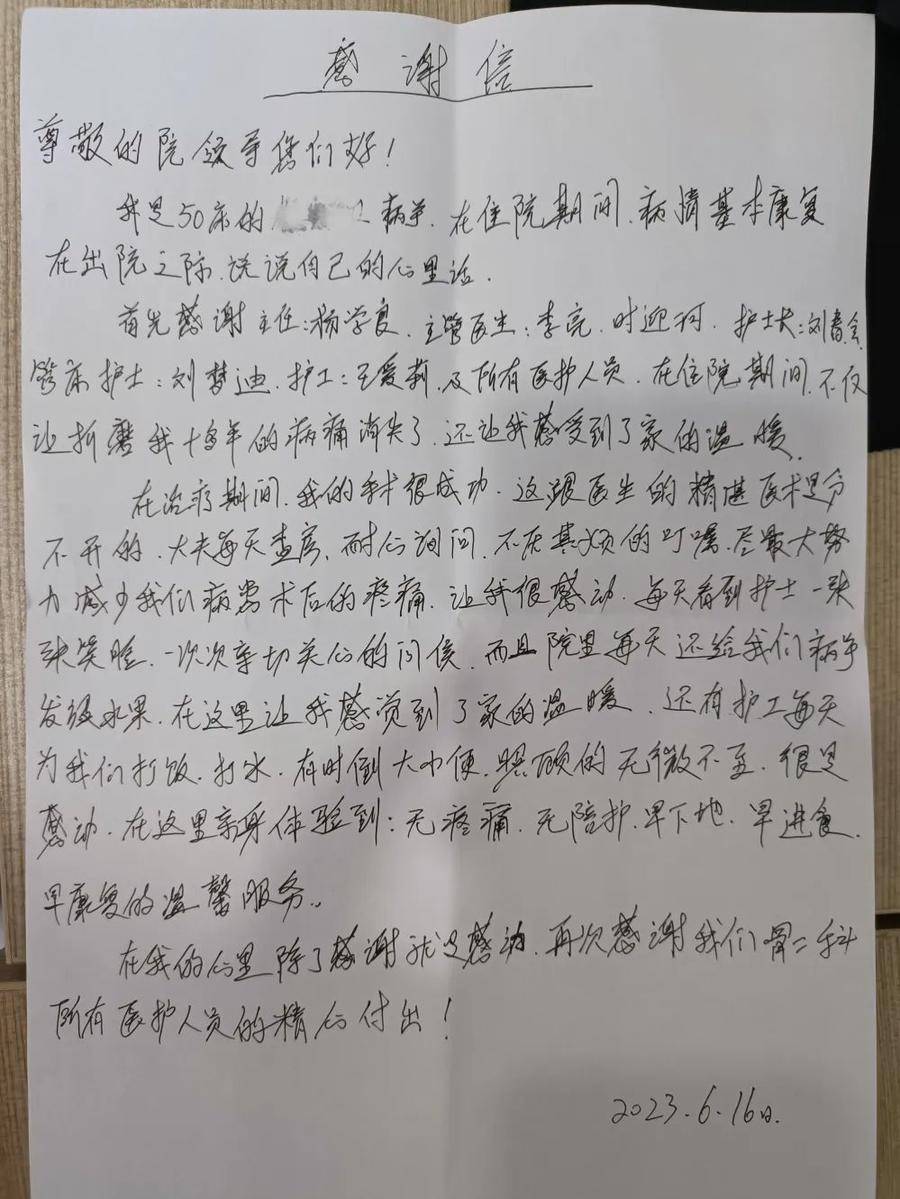 感谢信
尊敬的院领导您们好!
我是50床的 病号.在住院期间.病情基本康复
在出院之际.说说自己的心里话.
首先感谢主任:杨学良.主管医生:李亮.时迎珂.护士长:刘春会.
管床护士:刘梦迪.护工:王爱莉.及所有医护人员.在住院期间.不仅
让折磨我十多年的病痛消失了.还让我感受到了家的温暖.
在治疗期间.我的手术很成功.这跟医生的精湛医术是分
不开的.大夫每天查房.耐心询问.不厌其烦的叮嘱.尽最大努
力减少我们病患术后的疼痛.让我很感动.每天看到护士一张
张笑脸.一次次亲切关心的问侯.而且院里每天还给我们病号
发级水果.在这里让我感觉到了家的温暖.还有护工每天
为我们打饭.打水.有时倒大小便.照顾的无微不至.很是
感动.在这里亲身体验到:无疼痛.无陪护.早下地.早进食.
早康复的温馨服务..
在我的心里除了感谢就是感动.再次感谢我们骨二科
所有医护人员的精心付出!
2023.6.16日.